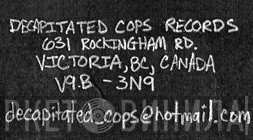 DECAPITATED COPS RECORDS
631 ROCKINGHAM RD.
VICTORIA, BC, CANADA
V9.B - 3N9
decapitated_cops@hotmail.com